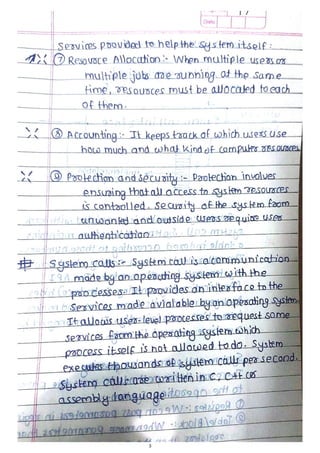 Date
Services provided to help the system itself :
⑦ Resource Allocation :- When multiple users or
multiple jobs are running at the same
time, resources must be allocated to each
of them.
⑧ Accounting :- It keeps track of which users use
how much and what kind of computer resources
⑨ Protection and security :- Protection involves
ensuring that all access to system resources
is controlled. Security of the system from
unwanted and outside users requires user
authentication
# System calls :- System call is a communication
made by an operating system with the
processes. It provides an interface to the
services made avialable by an operating system
It allows user-level processes to request some
services from the operating system which
process itself is not allowed to do. System
executes thousands of system calls per second.
System calls are written in C, C++ or
assembly language
5